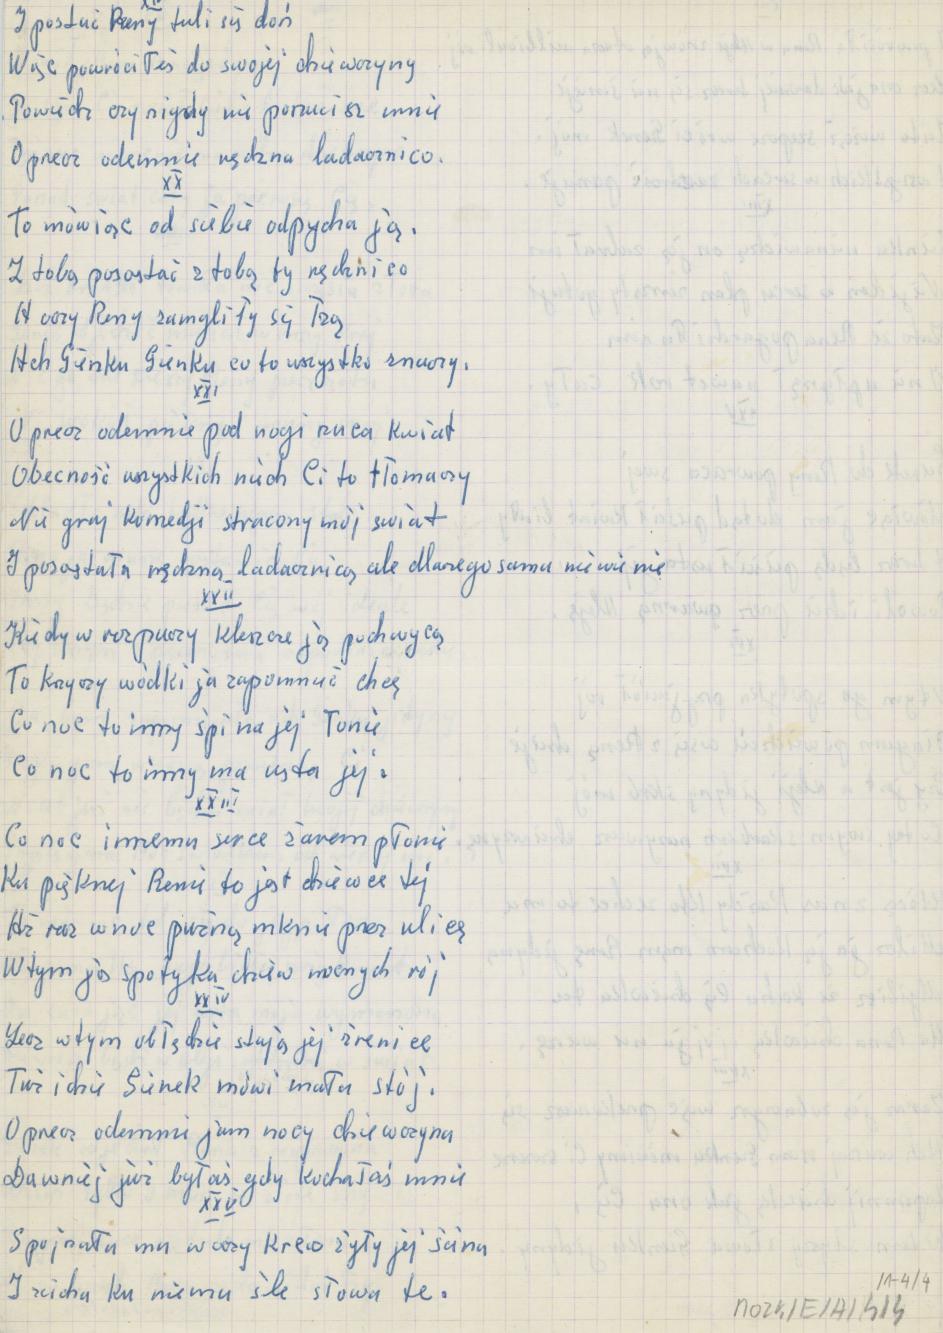 XIX
I postać Reny tuli się doń
Więc powróciłeś do swojej dziewczyny
Powiedz czy nigdy nie porzucisz mnie
O precz odemnie nędzna ladacznico.
XX
To mówiąc od siebie odpycha ją.
Z tobą pozostać z tobą ty nędznico
A oczy Reny zamgliły się łzą
Ach Gienku Gienku co to wszystko znaczy.
XXI
O precz odemnie pod nogi rzuca kwiat
Obecność wszystkich niech Ci to tłomaczy
Nie graj komedji stracony mój świat
I pozostała nędzną ladacznicą ale dlaczego sama nie wie nie
XXII
Kiedy w rozpaczy kleszcze ją pochwycą
To krzyczy wódki ja zapomnieć chcę
Co noc to inny śpi na jej łonie
Co noc to inny ma usta jej.
XXIII
Co noc innemu serce żarem płonie
Ku pięknej Renie to jest dziewce tej
Aż raz w noc późną mknie przez ulicę
Wtym jąs spotyka dziew nocnych rój
XXIV
Lecz wtym obłędzie stają jej źrenice
Tuż idzie Gienek mówi mała stój.
O precz odemni jam nocy dziewczyna
Dawniej już byłaś gdy kochałaś mnie
XXV
Spojrzała mu w oczy krew żyły jej ścina
I zcicha ku niemu śle słowa te.
/1-4/4